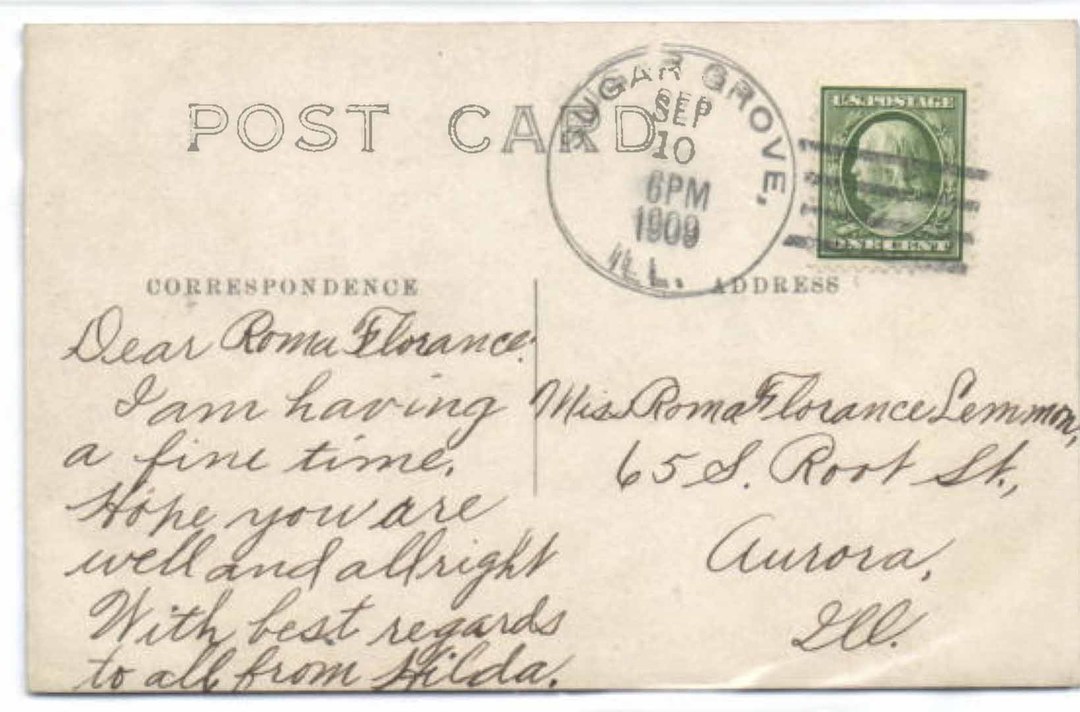 POST CARD
SUGAR GROVE,
SEP
10
6PM
1909
ILL.
U.S. POSTAGE
ONE CENT
CORRESPONDENCE
Dear Roma Florance.
I am having
a fine time.
Hope you are
well and allright
With best regards
to all from Hilda.
ADDRESS
Miss Roma Florance Lemmon,
65 S. Root St.,
Aurora,
Ill.